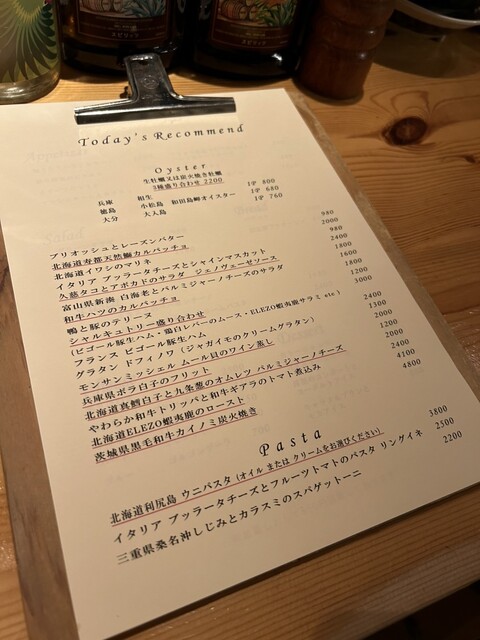 Today's Recommend
Oyster
生牡蠣又は炭火焼き牡蠣
3種盛り合わせ 2200
兵庫 相生 1P 800
徳島 小松島 和田島岬オイスター 1P 680
大分 大人島 1P 760
ブリオッシュとレーズンバター 980
北海道寿都天然鰤カルパッチョ 2000
北海道イワシのマリネ 980
イタリア ブッラータチーズとシャインマスカット 2400
久慈タコとアボカドのサラダ ジェノヴェーゼソース 1800
富山県新湊 白海老とパルミジャーノチーズのサラダ 1600
和牛ハツのカルパッチョ 1800
鴨と豚のテリーヌ 1200
シャルキュトリー盛り合わせ 3000
(ビゴール豚生ハム・鶏白レバーのムース・ELEZO蝦夷鹿サラミ etc)
フランス ビゴール豚生ハム 2400
グラタン ドフィノワ (ジャガイモのクリームグラタン) 1300
モンサンミッシェル ムール貝のワイン蒸し 2000
兵庫県ボラ白子のフリット
北海道真鱈白子と九条葱のオムレツ パルミジャーノチーズ
やわらか和牛トリッパと和牛ギアラのトマト煮込み 2400
北海道ELEZO蝦夷鹿のロースト 4100
茨城県黒毛和牛カイノミ炭火焼き 4800
Pasta
北海道利尻島 ウニパスタ (オイル または クリームをお選びください) 3800
イタリア ブッラータチーズとフルーツトマトのパスタ リングイネ 2500
三重県桑名沖しじみとカラスミのスパゲットーニ 2200